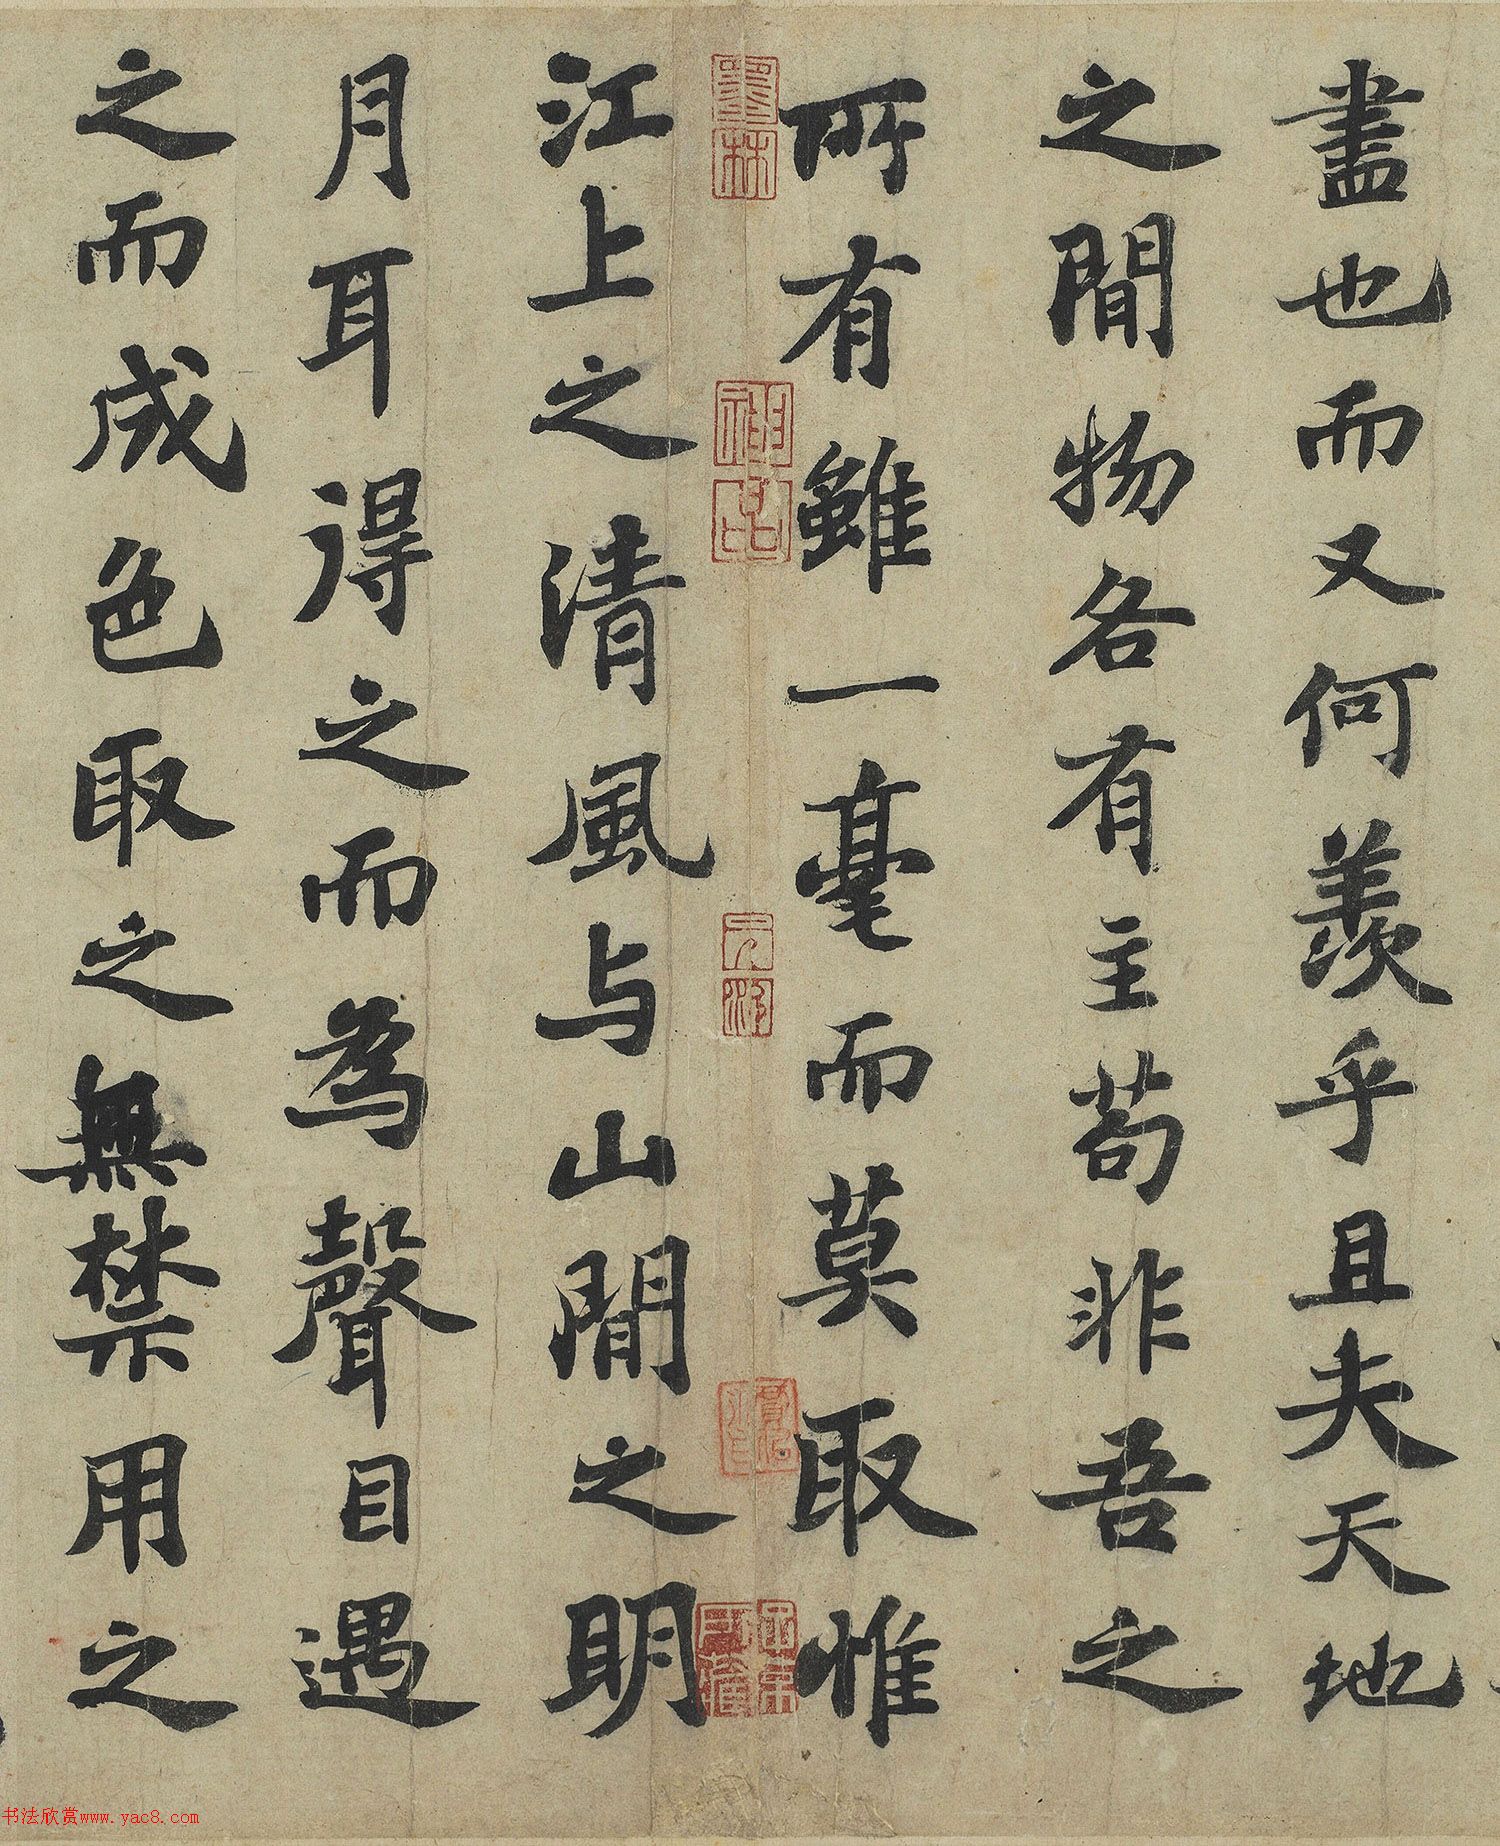 盡也而又何羨乎且夫天地
之間物各有主苟非吾之
所有雖一毫而莫取惟
江上之清風与山間之明
月耳得之而為聲目遇
之而成色取之無禁用之
书法欣赏www.yac8.com